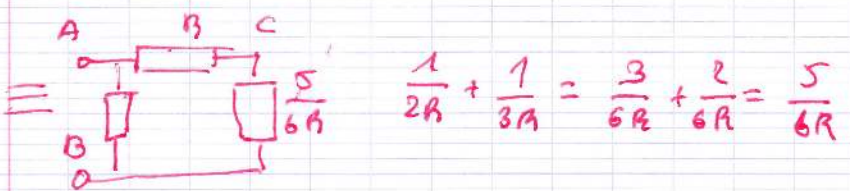 A R C
≡ 5/6R 1/2R + 1/3R = 3/6R + 2/6R = 5/6R
B